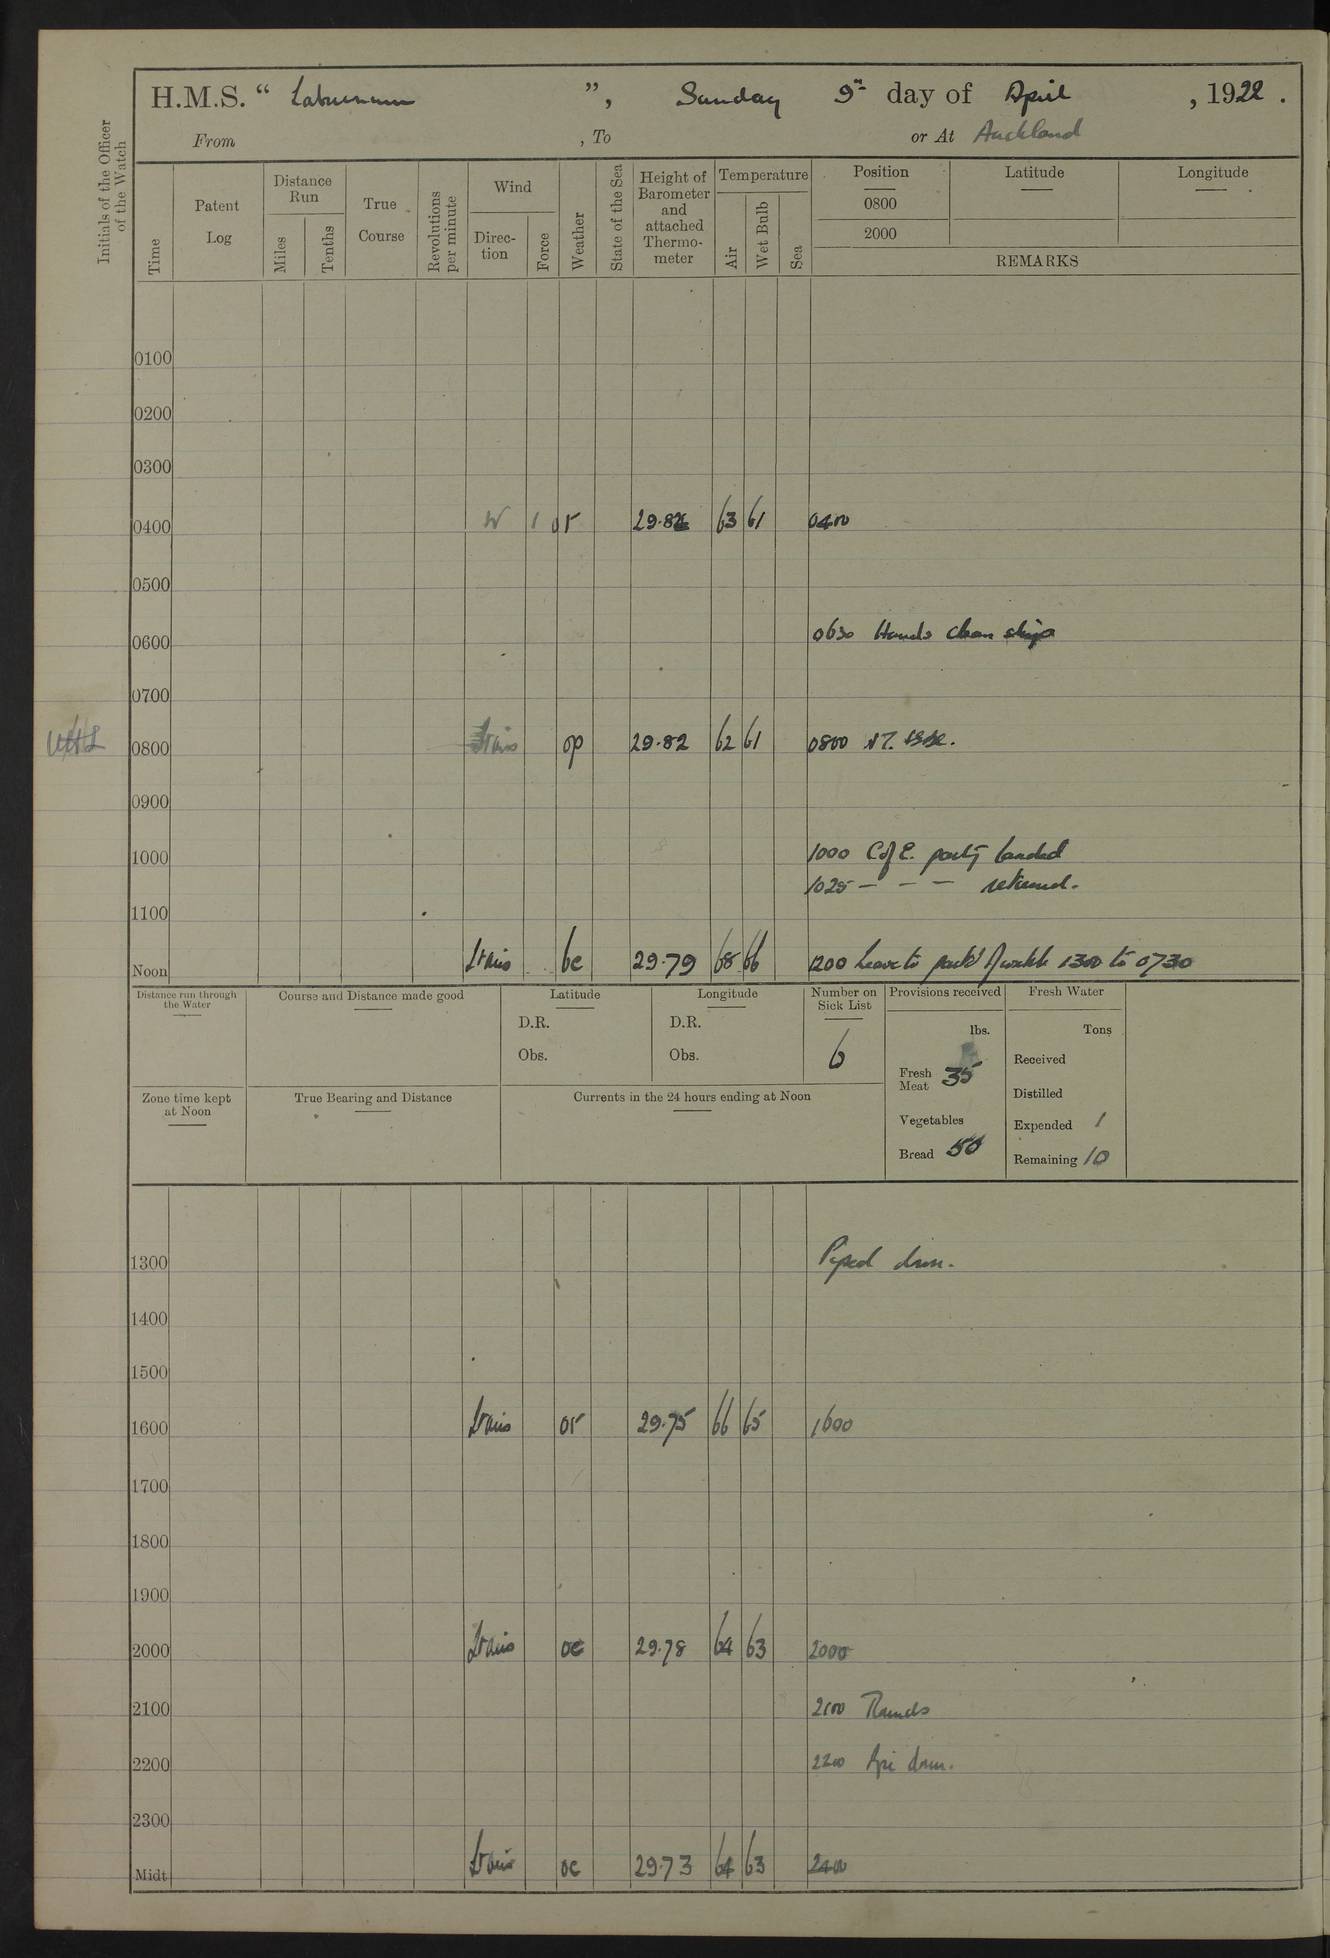 H.M.S. “ Laburnum ”, Sunday 9th day of April , 1922 .
From , To or At Auckland
Initials of the Officer of the Watch
Time
Patent Log
Distance Run
Miles
Tenths
True Course
Revolutions per minute
Wind
Direction
Force
Weather
State of the Sea
Height of Barometer and attached Thermometer
Temperature
Air
Wet Bulb
Sea
Position
0800
2000
Latitude
Longitude
REMARKS
0100
0200
0300
0400 W 1 or 29.82 63 61 0400
0500
0600 0630 Hands clean ship
0700
0800 Lt airs op 29.82 62 61 0800
0900
1000 1000 C of E. party landed
1025 — — — returned.
1100
Noon Lt airs bc 29.79 68 66 1200 Leave to part of watch 1300 to 0730
Distance run through the Water
Course and Distance made good
Latitude
D.R.
Obs.
Longitude
D.R.
Obs.
Number on Sick List
6
Provisions received
lbs.
Fresh Meat 35
Vegetables
Bread 50
Fresh Water
Tons
Received
Distilled
Expended 1
Remaining 10
Zone time kept at Noon
True Bearing and Distance
Currents in the 24 hours ending at Noon
1300 Piped down.
1400
1500
1600 Lt airs or 29.75 66 65 1600
1700
1800
1900
2000 Lt airs oc 29.78 64 63 2000
2100 2100 Rounds
2200 2200 Pipe down.
2300
Midt Lt airs oc 29.73 64 63 2400